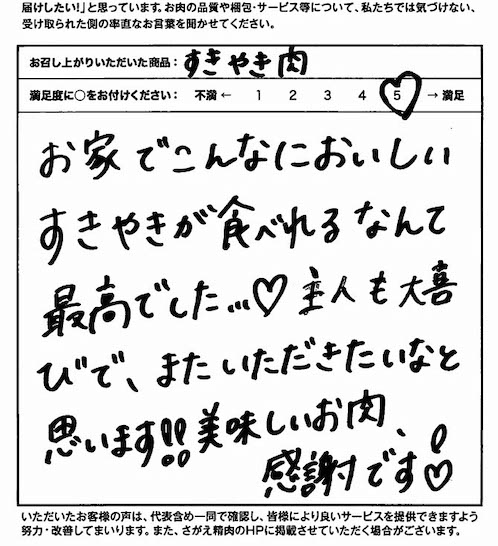 届けしたい!」と思っています。お肉の品質や梱包・サービス等について、私たちでは気づけない、
受け取られた側の率直なお言葉を聞かせてください。
お召し上がりいただいた商品： すきやき肉
満足度に○をお付けください： 不満 ← 1 2 3 4 5 → 満足
お家でこんなにおいしい
すきやきが食べれるなんて
最高でした…♡ 主人も大喜
びで、またいただきたいなと
思います!!美味しいお肉、
感謝です!♡
いただいたお客様の声は、代表含め一同で確認し、皆様により良いサービスを提供できますよう
努力・改善してまいります。また、さがえ精肉のHPに掲載させていただく場合がございます。